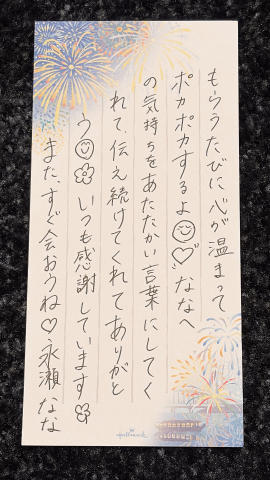 もらうたびに、心が温まって
ポカポカするよ☺♡”ななへ
の気持ちをあたたかい言葉にしてく
れて、伝え続けてくれてありがと
う☺✿いつも感謝しています✿
また、すぐ会おうね♡永瀬なな
Hallmark